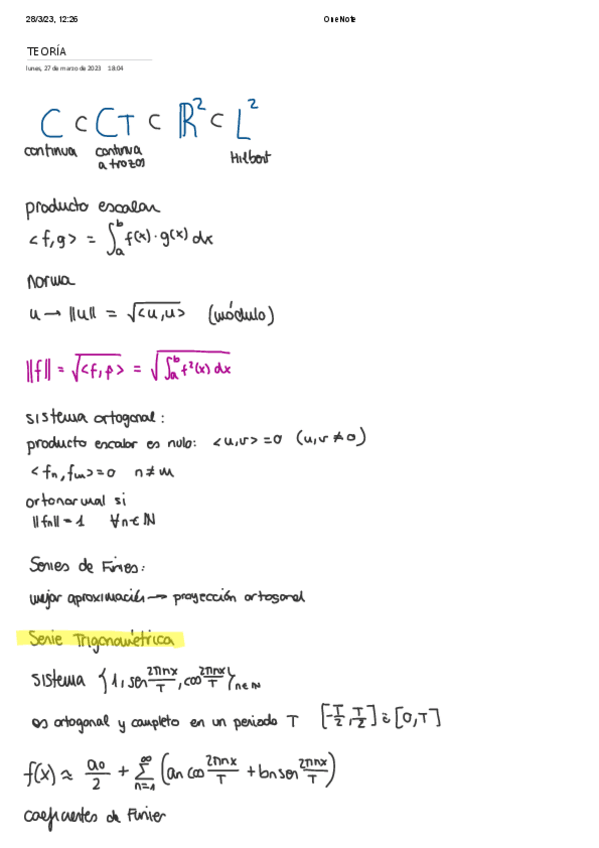 28/3/23, 12:26 OneNote
TEORÍA
lunes, 27 de marzo de 2023 18:04
C ⊂ CT ⊂ ℝ² ⊂ L²
continua continua a trozos Hilbert
producto escalar
<f,g> = ∫ₐᵇ f(x)·g(x) dx
norma
u → ||u|| = √<u,u> (módulo)
||f|| = √<f,f> = √∫ₐᵇ f²(x) dx
sistema ortogonal:
producto escalar es nulo: <u,v> = 0 (u,v ≠ 0)
<fn, fm> = 0 n ≠ m
ortonormal si
||fn|| = 1 ∀n ∈ ℕ
Series de Fourier:
mejor aproximación → proyección ortogonal
Serie Trigonométrica
sistema {1, sen 2πnx/T, cos 2πnx/T} n∈ℕ
es ortogonal y completo en un periodo T [-T/2, T/2] ó [0,T]
f(x) ≈ a0/2 + ∑ n=1 ∞ (an cos 2πnx/T + bn sen 2πnx/T)
coeficientes de Fourier